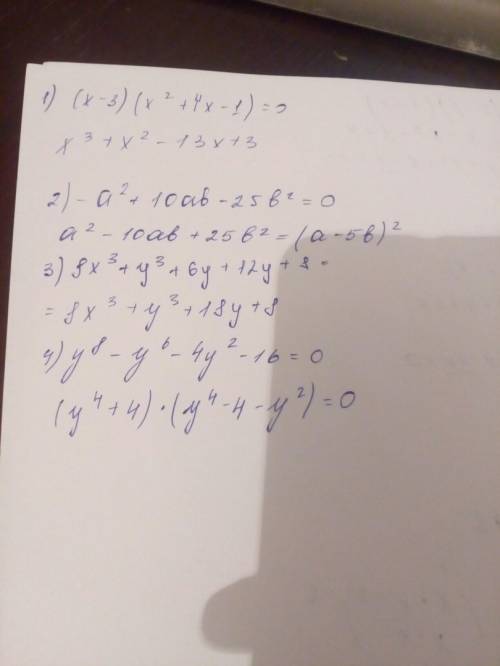 1) (x-3)(x²+4x-1)=0
x³+x²-13x+3
2) -a²+10ab-25b²=0
a²-10ab+25b²=(a-5b)²
3) 8x³+y³+6y+12y+8=
=8x³+y³+18y+8
4) y⁸-y⁶-4y²-16=0
(y⁴+4)·(y⁴-4-y²)=0